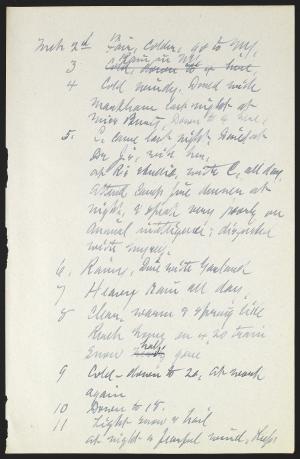 Mch 2d Fair, Colder, go to N.Y.
3 Rain in N.Y.
4 Cold windy. Dined with
Markham last night at
Miss
5. C. came last night. Dined at
Dr. J's, with her,
at R's studio, with C, all day.
Attend Camp fire dinner at
night, & speak very poorly on
animal intelligence; disgusted
with myself.
6, Rainy, Dine with Garland
7 Heavy rain all day,
8 Clear, warm & spring like
Reach home on 4 20 train
Snow half gone
9 Cold - down to 20, at work
again
10 Down to 18.
11 Light snow & hail
at night & fearful wind,